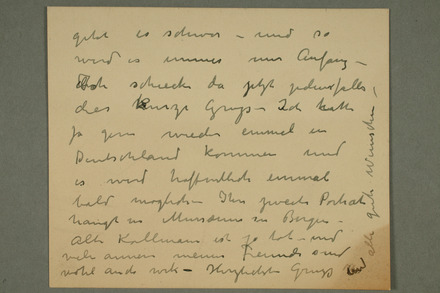 geht es schwer - und so
wird es immer nur Anfang -
schicke da jetzt jedenfalls
das kurze Gruss - Ich hatte
ja gern wieder einmal in
Deutschland kommen und
es wird hoffentlich einmal
bald möglich - Ihr zweites Porträt
hängt im Museum in Bergen -
Alte Kollmann ist ja tot - und
viele andere meine Freunde sind
wohl auch weg - Herzlichste Gruss
und alle gute Wünschen -